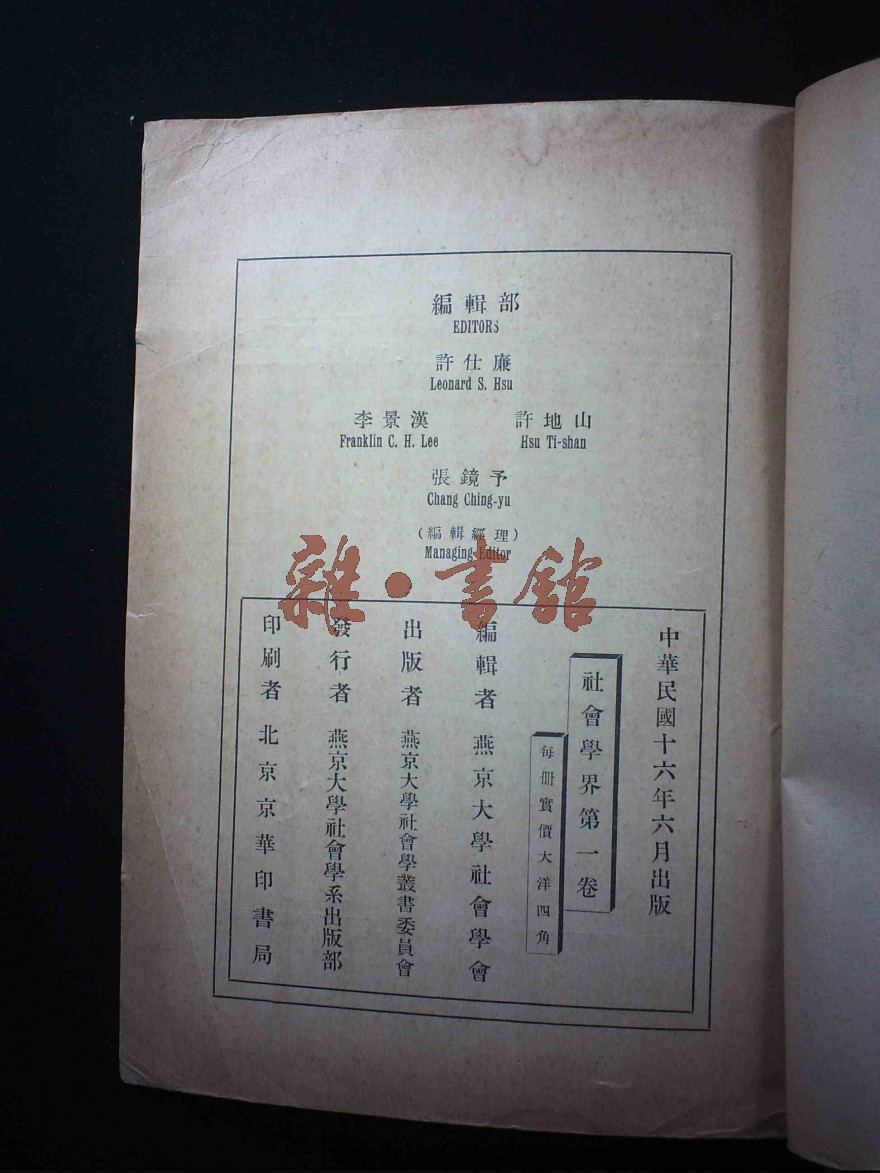 編輯部
EDITORS
許仕廉
Leonard S. Hsu
李景漢
Franklin C. H. Lee
許地山
Hsu Ti-shan
張鏡予
Chang Ching-yu
(編輯經理)
Managing Editor
雜·書館
中華民國十六年六月出版
社會學界第一卷
每冊實價大洋四角
編輯者 燕京大學社會學會
出版者 燕京大學社會學叢書委員會
發行者 燕京大學社會學系出版部
印刷者 北京京華印書局